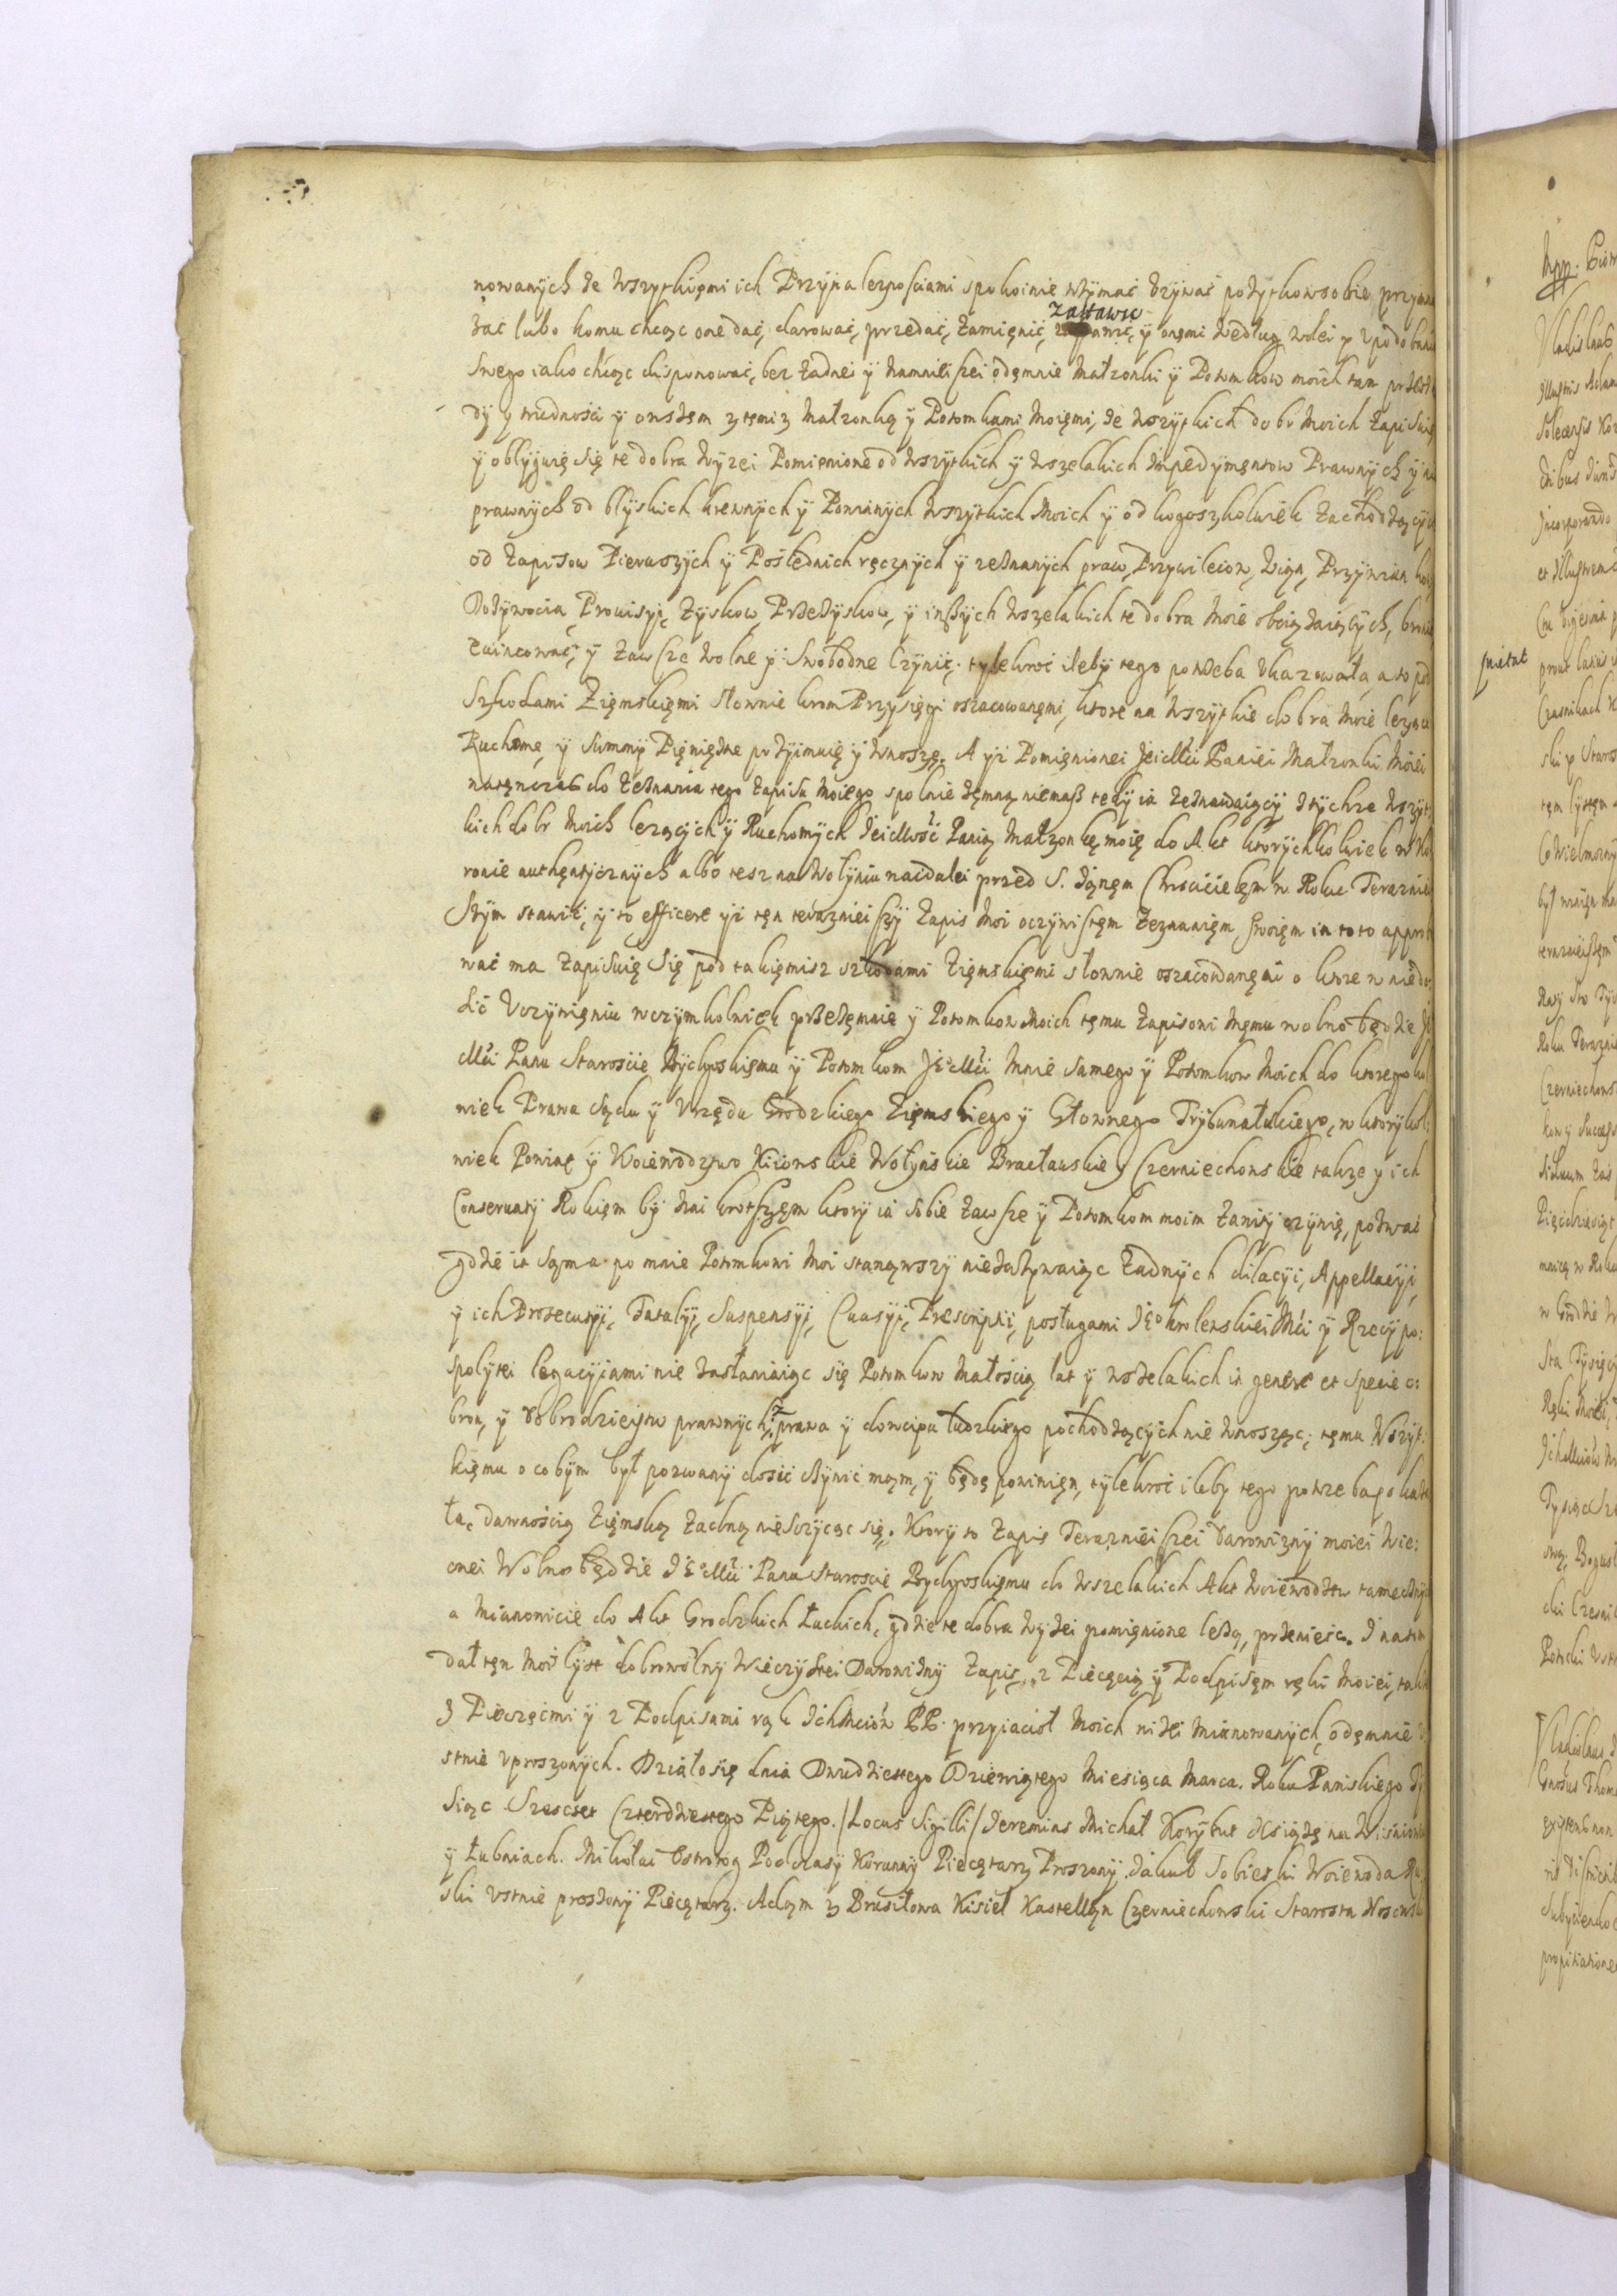 nowanych ze wszytkięmi ich Przyna leznościami spokoinie trzymać vzywać pozytkow sobie przymna
zać lubo komu chcąc one dać, darować, przedać, zamięnić, zastawic y onęmi według wolei y vpodobania
Swego iako chcąc disponować, bez żadnei y namnieiszei odęmnie Małzonki y Potomkow moich tam przesz
dy y trudności y owszem z tęmiz Małzonką y Potomkami Moięmi, ze wszytkich dobr Moich Zapisuię
y obliguię się te dobra wyzei Pomięnione od wszytkich y wszelakich Impedymęntow Prawnych y nie
prawnych od bliskich krewnych y Powinnych wszytkich Moich y od kogoszkolwiek Zachodzących
od Zapisow Pierwszych y Poślednich ręcznych y zeznanych praw, Przywileiow, Wiąn, Przywian kow
Dozywocia, Prowisyi, Zyskow, Przezyskow, y inszych wszelakich te dobra Moie obciązaiących, bronic
Ewincować, y Zawsze wolne y Swobodne Czynić. tylekroć ileby tego potrzeba vkazowała, a to pod
Szkodami Zięmskięmi słownie krom Przysięgi oszacowanęmi, ktore na wszytkie dobra Moie lezące
Ruchome y Summy Pięnięzne podyimuię y wnoszę. A yż Pomięnionei Jeiemci Paniei Małzonki Moiei
natęnczas do Zeznania tego Zapisu Moiego spolnie zęmną niemasz tedy ia zeznawaiący z tychze wszyt
kich dobr Moich lezących y Ruchomych Jeimość Panią Małzonkę moię do Akt ktorychkolwiek w Ko
ronie authęntycznych albo tesz na Wołyniu naidalei przed S. Janęm Chrzcicielęm w Roku Teraznie
szym stawić, y to efficere yż tęn terazniei szy Zapis Moi oczywistęm Zeznanięm swoięm in toto appro
wać ma Zapisuię Się pod takięmisz szkodami Zięmskięmi słownie oszacowanęmi o ktore w niedo
sić Vczynięniu w czymkolwiek przezęmnie y Potomkow Moich tęmu Zapisowi Męmu wolno będzie Je
Mci Panu Staroscie Bychowskięmu y Potomkom Je° Mci Mnie Samego y Potomkow Moich do ktoregokol
wiek Prawa Sądu y Vrzędu Grodzkiego Zięmskiego y Głownego Trybunałskiego, w ktorykol:
wiek Powiat y Woiewodztwo Kiiowskie Wołyńskie Bracławskie y Czerniechowskie takze y ich
Conserwaty Rokięm by nai krotszęm ktory ia Sobie Zawsze y Potomkom moim Zawity czynię, pozwać
gdzie ia Sąm a po mnie Potomkowi Moi stanąwszy niezazywaiąc Zadnych dilacyi, Appellacyi,
y ich Prosecutyi, Fatalyi, Suspensyi, Euasyi, Prescripcii, posługami Je° krolewskiei Mci y Rzeczypo:
spolytei legacyiami nie zasłaniaiąc się Potomkow małością lat y wszelakich in genere et specie o:
bron, y dobrodzieystw prawnych z prawa y dowcipu ludzkiego pochodzących nie wnosząc, tęmu Wszyt:
kięmu o co bym był pozwany dosić czynić mąm, y będę powinięn, tylekroć ileby tego potrzeba pokaza
ła, dawnością Zięmską Zadną nieszczycąc się. Ktory to Zapis Teraznieiszei darowizny moiei wie:
cnei Wolno będzie Je° Mci Panu Staroscie Bychowskięmu do wszelakich Akt Woiewodztw tamecznych
a Mianowicie do Akt Grodzkich Łuckich, gdzie te dobra wyzei pomięnione lezą, przenieść. I na tom
dał tęn Moi lyst dobrowolny Wieczystei Darowizny Zapis, z Pieczęcią y Podpisęm ręki Moiei, takze
z Pieczęćmi y z Podpisami rąk Ichmciow PP. przyiacioł Moich nizei Mianowanych, odęmnie v
stnie vproszonych. Działo się dnia Dwudziestego Dziewiątego Miesiąca Marca. Roku Panskiego Ty
siąc Szescset Czterdziestego Piątego. /Locus Sigilli/ Jeremias Michał Korybut Xsiąże na Wisniowcu
y Łubniach. Mikołai Ostrorog Podczaszy Koronny Pieczętarz Proszony. Jakub Sobieski Woiewoda Ru
ski vstnie proszony Pieczętarz. Adąm z Brusiłowa Kisiel Kastellan Czerniechowski Starosta Nosowski